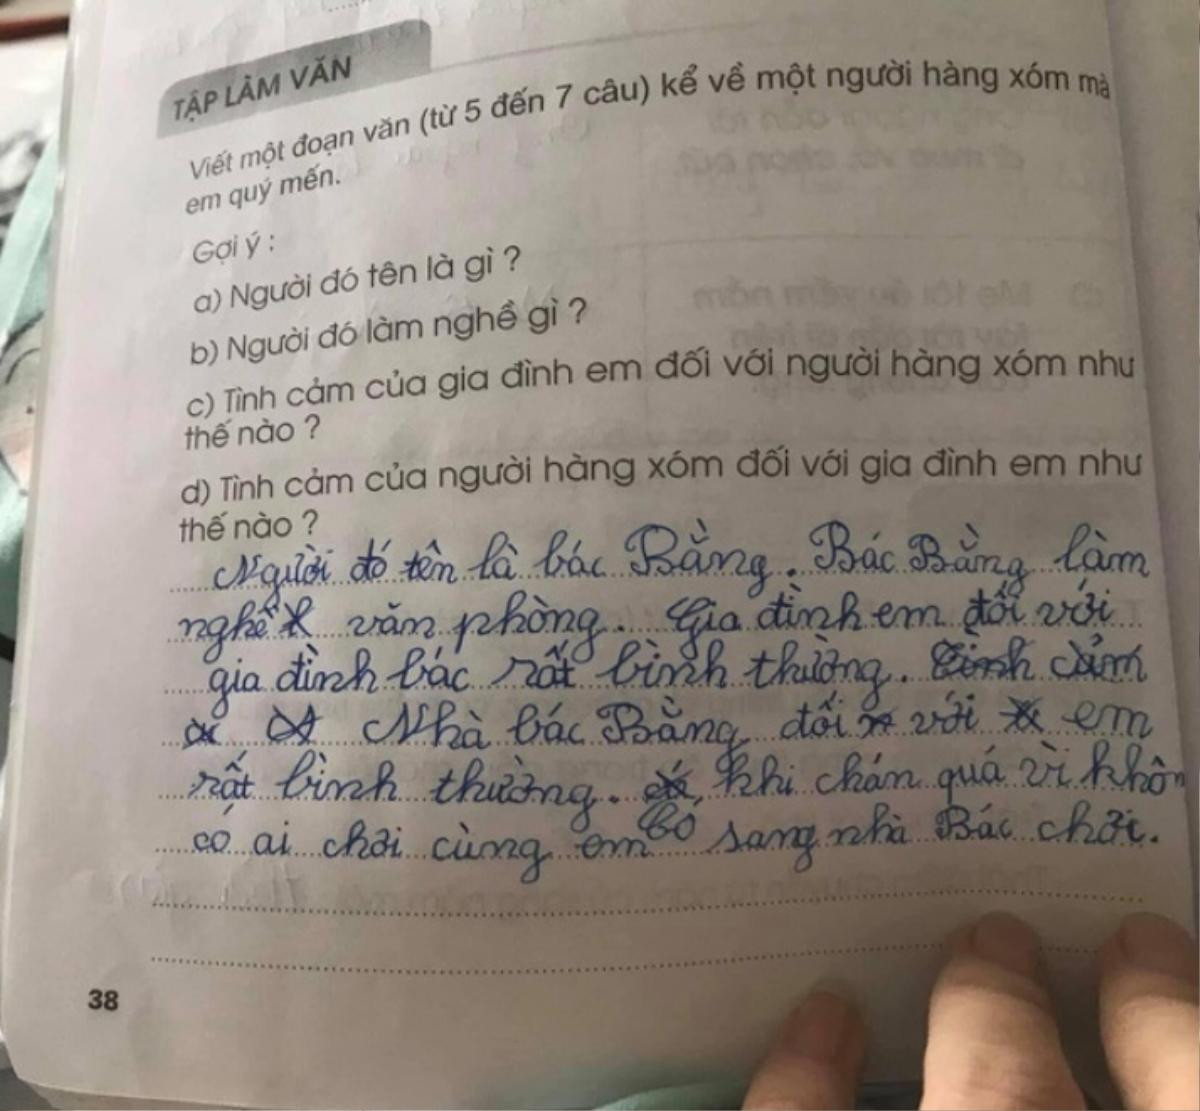 TẬP LÀM VĂN
Viết một đoạn văn (từ 5 đến 7 câu) kể về một người hàng xóm mà
em quý mến.
Gợi ý :
a) Người đó tên là gì ?
b) Người đó làm nghề gì ?
c) Tình cảm của gia đình em đối với người hàng xóm như
thế nào ?
d) Tình cảm của người hàng xóm đối với gia đình em như
thế nào ?
Người đó tên là bác Bằng. Bác Bằng làm
nghề văn phòng. Gia đình em đối với
gia đình bác rất bình thường.
Nhà bác Bằng đối với em
rất bình thường. khi chán quá vì khôn
có ai chơi cùng em sang nhà Bác chơi.
38